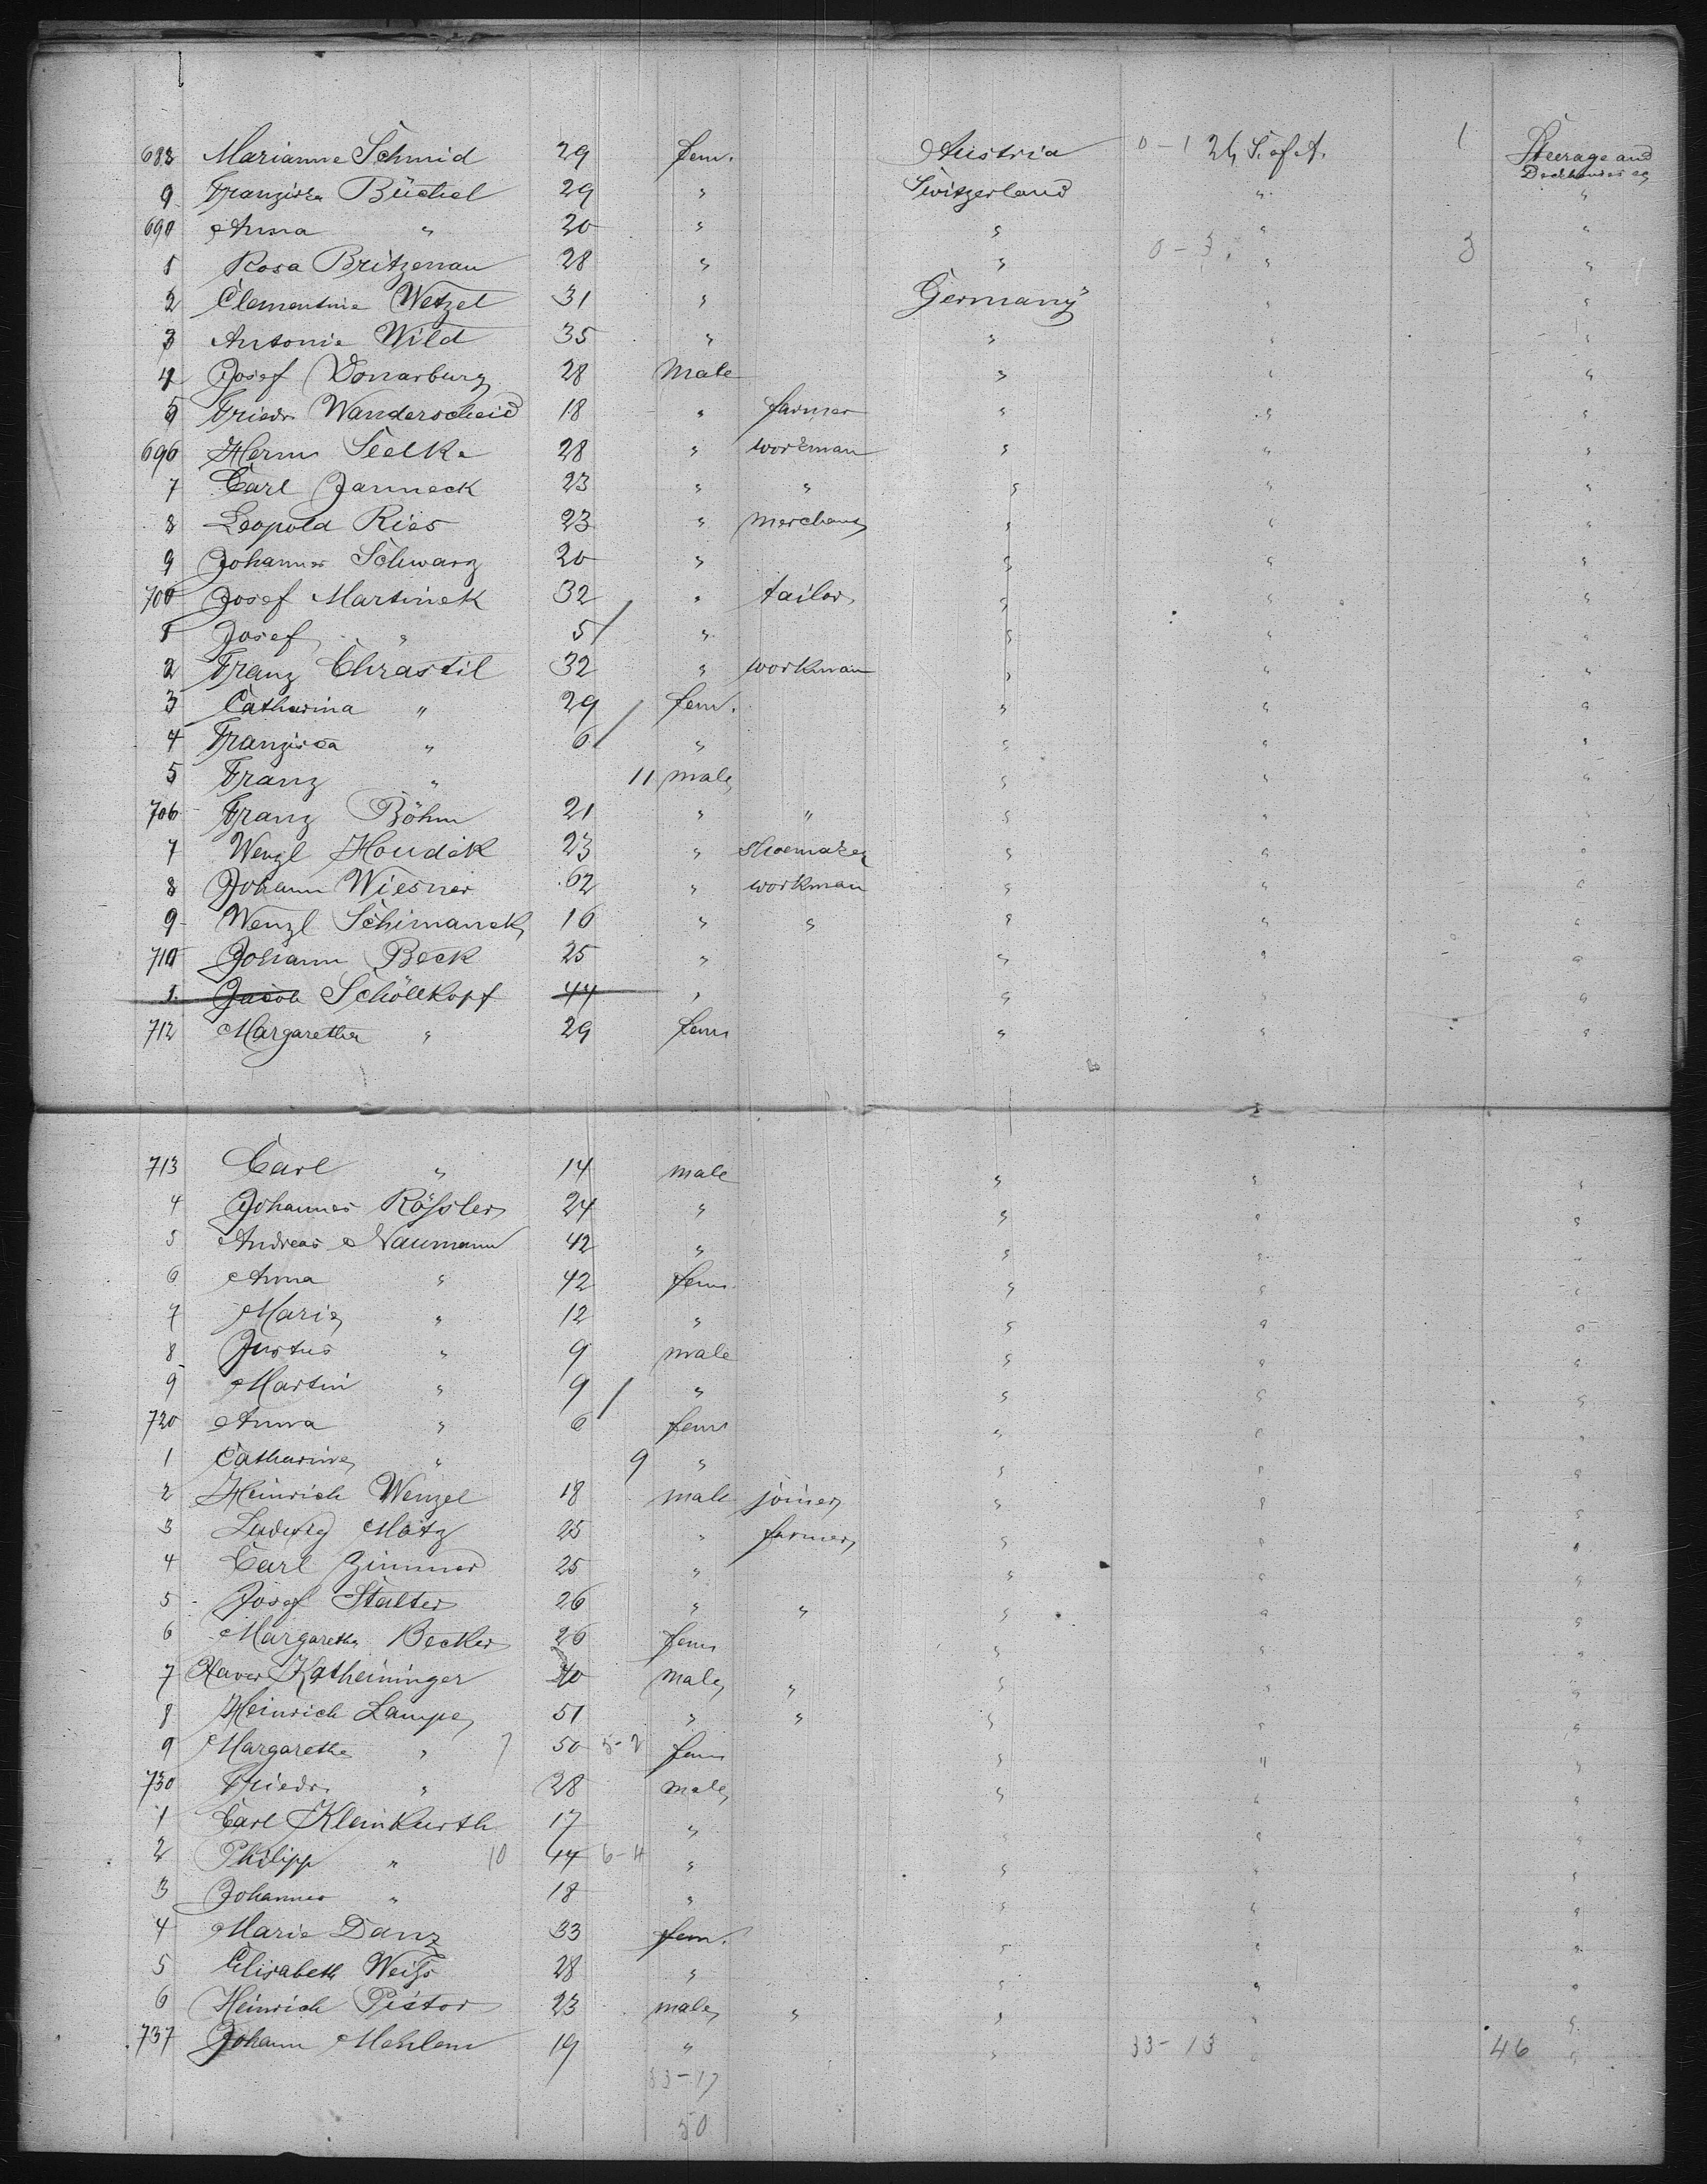 688 Marianne Schmid 29 fem. Austria 0-1 U. S. of A. 1 Steerage and
9 Franziska Büchel 29 " Switzerland " "
690 Anna " 20 " " " "
1 Rosa Britzenau 28 " " 0-3 " 3 "
2 Clementine Wetzel 31 " Germany " "
3 Antonie Wild 35 " " " "
4 Josef Donarburg 28 Male " " "
5 Friedr. Wanderscheid 18 " farmer " " "
696 Herm Seelke 28 " workman " " "
7 Carl Janneck 23 " " " " "
8 Leopold Ries 23 " merchant " " "
9 Johannes Schwarz 20 " " " "
700 Josef Martinek 32 " tailor " " "
1 Josef " 5 / " " " "
2 Franz Chrastil 32 " workman " " "
3 Catharina " 29 fem. " " "
4 Franzisca " 6 / " " " "
5 Franz " 11 male " " "
706 Franz Böhm 21 " " " " "
7 Wenzl Houdek 23 " shoemaker " " "
8 Johann Wiesner 62 " workman " " "
9 Wenzl Schimanek 16 " " " " "
710 Johann Beck 25 " " " "
1 Jacob Schöllkopf 44 " " " "
712 Margaretha " 29 fem " " "
713 Carl " 14 male " " "
4 Johannes Rößler 24 " " " "
5 Andreas Naumann 42 " " " "
6 Anna " 42 fem. " " "
7 Marie " 12 " " " "
8 Justus " 9 male " " "
9 Martin " 9 / " " " "
720 Anna " 6 fem " " "
1 Catharine " 9 " " " "
2 Heinrich Wenzel 18 male joiner " " "
3 Ludwig Motz 25 " farmer " " "
4 Carl Zimmer 25 " " " "
5 Josef Stalter 26 " " " " "
6 Margaretha Becker 26 fem " " "
7 Xaver Katheininger 40 male " " " "
8 Heinrich Lampe 51 " " " " "
9 Margarethe " 7 50 5-2 fem " " "
730 Friedr. " 28 male " " "
1 Carl Kleinkurth 17 " " " "
2 Philipp " 10 44 6-4 " " " "
3 Johannes " 18 " " " "
4 Marie Danz 33 fem. " " "
5 Elisabeth Weiß 28 " " " "
6 Heinrich Pistor 23 male " " " "
737 Johann Mehlem 19 " " 33-13 " 46 "
33-17
50